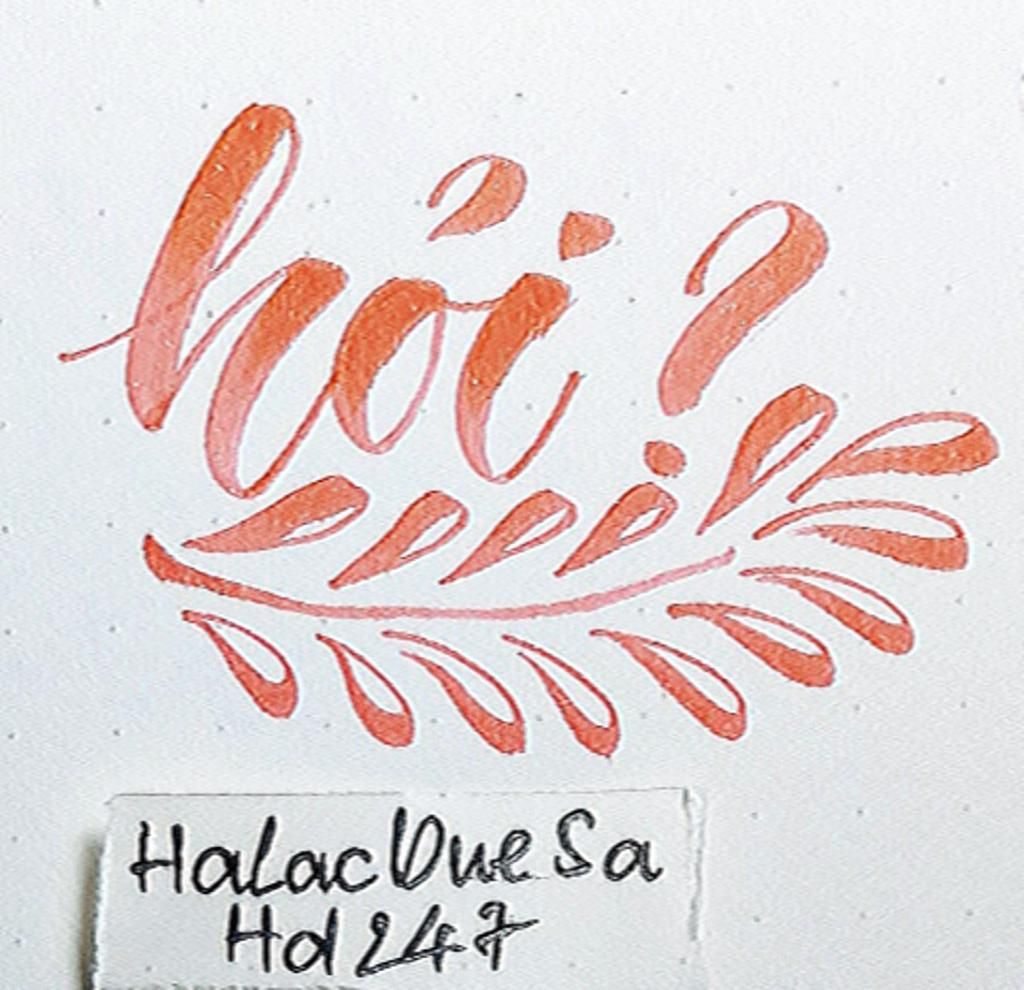 hỏi?
HaLacDueSa
Hd247